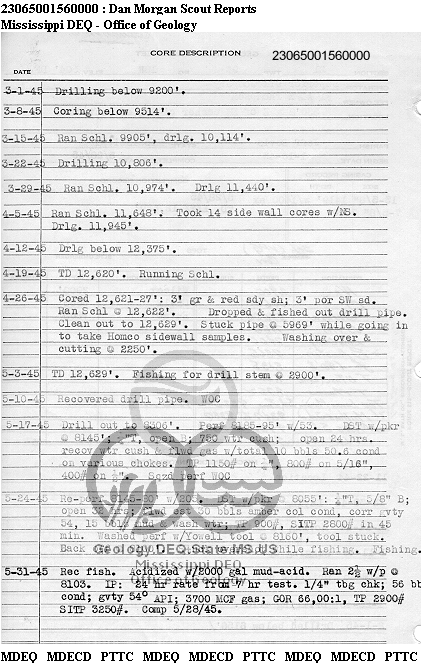 23065001560000 : Dan Morgan Scout Reports
Mississippi DEQ - Office of Geology
CORE DESCRIPTION 23065001560000
DATE
3-1-45 Drilling below 9200'.
3-8-45 Coring below 9514'.
3-15-45 Ran Schl. 9905', drlg. 10,114'.
3-22-45 Drilling 10,806'.
3-29-45 Ran Schl. 10,974'. Drlg 11,440'.
4-5-45 Ran Schl. 11,648'. Took 14 side wall cores w/NS.
Drlg. 11,945'.
4-12-45 Drlg below 12,375'.
4-19-45 TD 12,620'. Running Schl.
4-26-45 Cored 12,621-27': 3' gr & red sdy sh; 3' por SW sd.
Ran Schl @ 12,622'. Dropped & fished out drill pipe.
Clean out to 12,629'. Stuck pipe @ 5969' while going in
to take Homco sidewall samples. Washing over &
cutting @ 2250'.
5-3-45 TD 12,629'. Fishing for drill stem @ 2900'.
5-10-45 Recovered drill pipe. WOC
5-17-45 Drill out to 8306'. Perf 8185-95' w/53. DST w/pkr
@ 8145'; "T, open B; 750 wtr cush; open 24 hrs.
recov wtr cush & flwd gas w/total 10 bbls 50.6 cond
on various chokes. TP 1150# on 800# on 5/16",
400# on Sqzd perf WOC
5-24-45 Re-perf w/ DST w/pkr @ 8055'; ½"T, 5/8" B;
open hrs; flwd 30 bbls amber col cond, corr gvty
54, 15 wash wtr; 900#, SITP 2800# in 45
min. Washed perf w/Yowell tool @ 8160', tool stuck.
Back while fishing. Fishing.
Geology.DEQ.State.MS.US
Mississippi DEQ
Office of Geology
5-31-45 Rec fish. Acidized w/2000 gal mud-acid. Ran 2½ w/p @
8103. IP: 24 hr rate from 7 hr test. 1/4" tbg chk; 56 bb
cond; gvty 54° API; 3700 MCF gas; GOR 66,00:1, TP 2900#
SITP 3250#. Comp 5/28/45.
MDEQ MDECD PTTC MDEQ MDECD PTTC MDEQ MDECD PTTC MDEQ